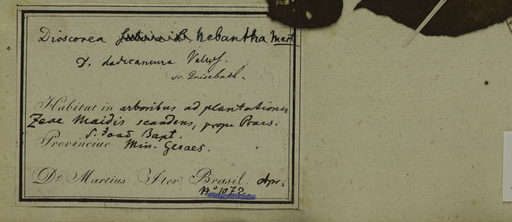 Dioscorea hebantha Mart
D. dodecaneura Vell.
sec. Grisebach.
Habitat in arboribus ad plantationes
Zeae Maidis scandens, prope Praes.
S. Joao Bapt.
Provinciae Min. Geraes.
Dr. Martius Iter Brasil. Apr:
N° 1072